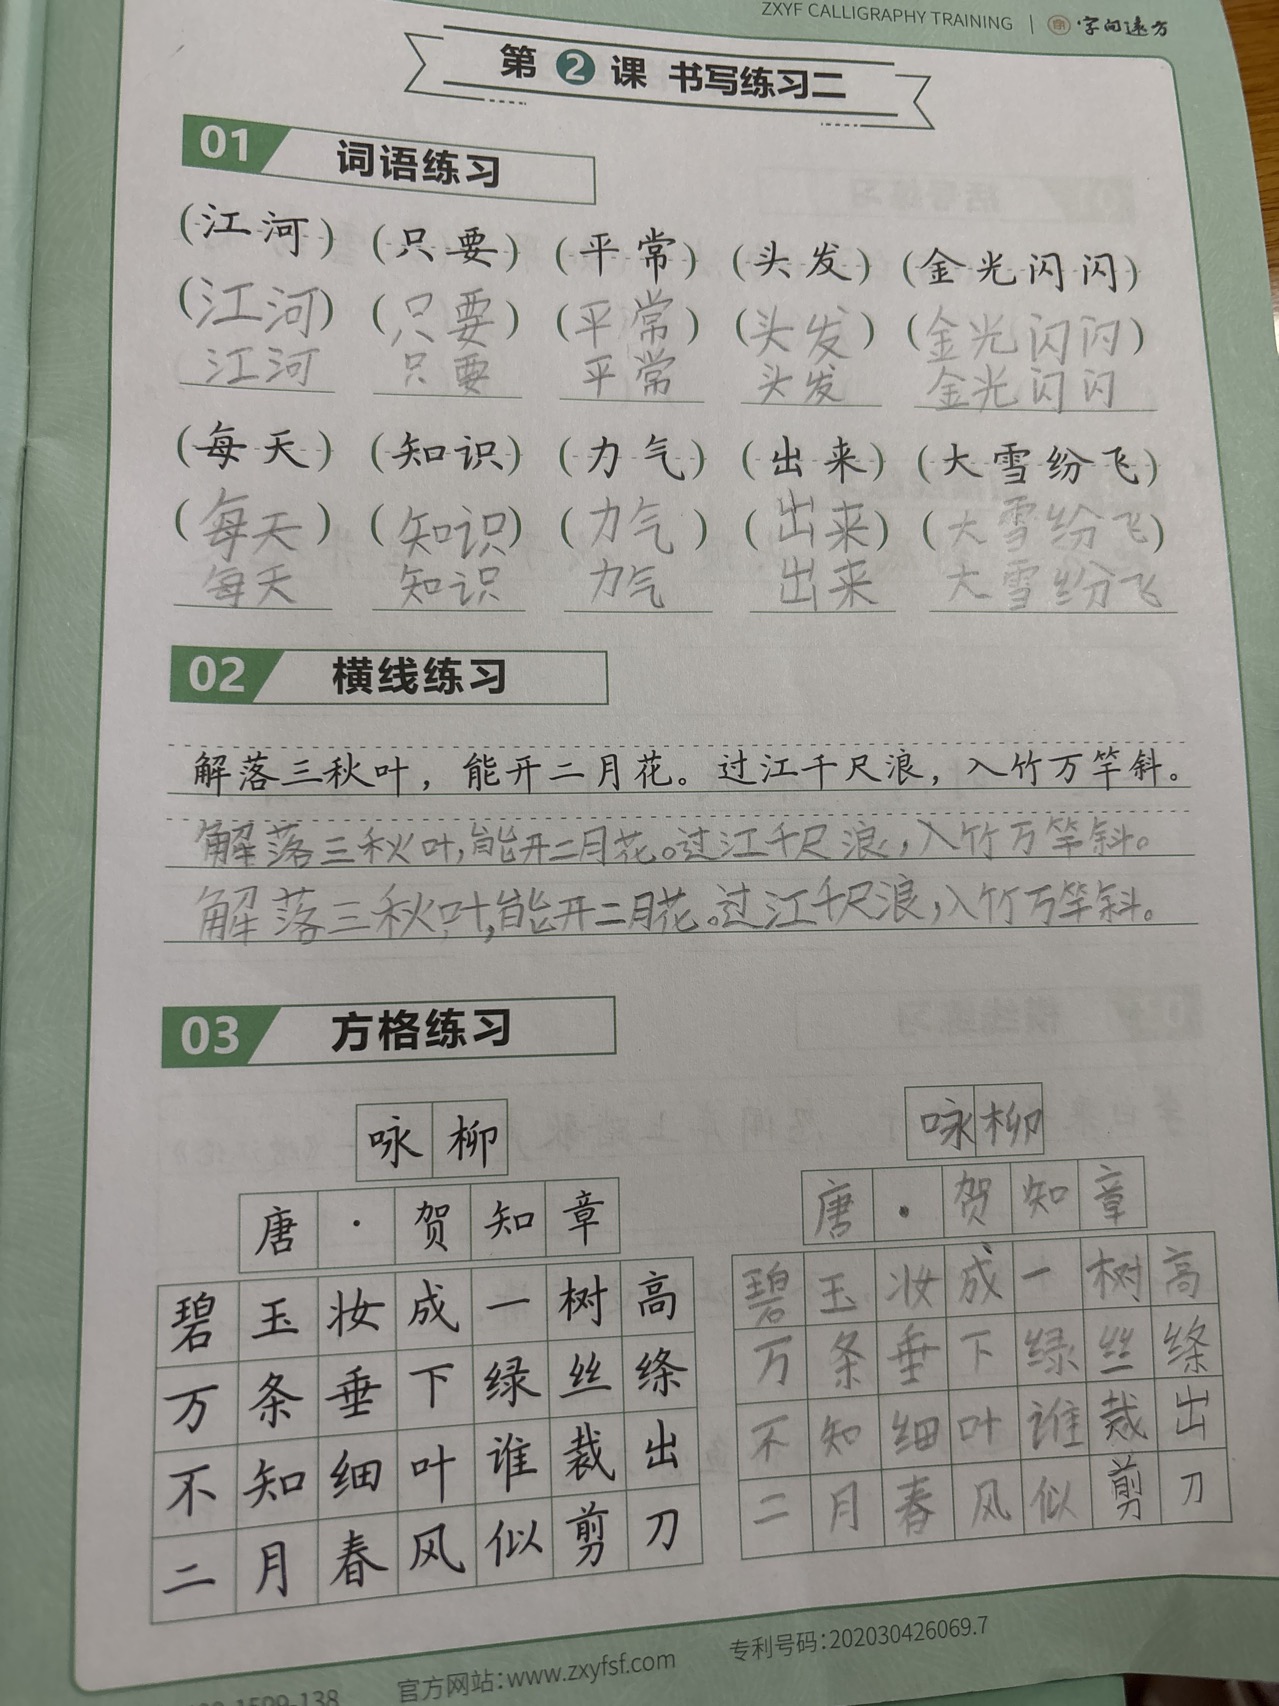 ZXYF CALLIGRAPHY TRAINING | 字间远方
第 2 课 书写练习二
01 词语练习
(江河) (只要) (平常) (头发) (金光闪闪)
(江河) (只要) (平常) (头发) (金光闪闪)
江河 只要 平常 头发 金光闪闪
(每天) (知识) (力气) (出来) (大雪纷飞)
(每天) (知识) (力气) (出来) (大雪纷飞)
每天 知识 力气 出来 大雪纷飞
02 横线练习
解落三秋叶，能开二月花。过江千尺浪，入竹万竿斜。
解落三秋叶，能开二月花。过江千尺浪，入竹万竿斜。
解落三秋叶，能开二月花。过江千尺浪，入竹万竿斜。
03 方格练习
咏柳
唐·贺知章
碧玉妆成一树高
万条垂下绿丝绦
不知细叶谁裁出
二月春风似剪刀
咏柳
唐·贺知章
碧玉妆成一树高
万条垂下绿丝绦
不知细叶谁裁出
二月春风似剪刀
官方网站：www.zxyfsf.com 专利号码：202030426069.7